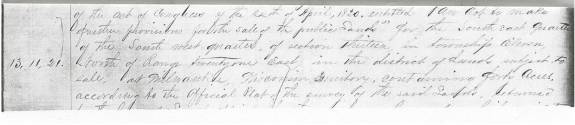 of the act of Congress of the 24th of April, 1820, entitled "An Act to make
further provision for the sale of the public Lands" for the South east Quarter
of the South west quarter, of section Thirteen in township Eleven
13. 11. 21. North of Range Twenty one East, in the district of Lands subject to
sale at Milwaukee Wisconsin Territory, containing Forty Acres,
according to the Official Plat of the survey of the said Lands, returned